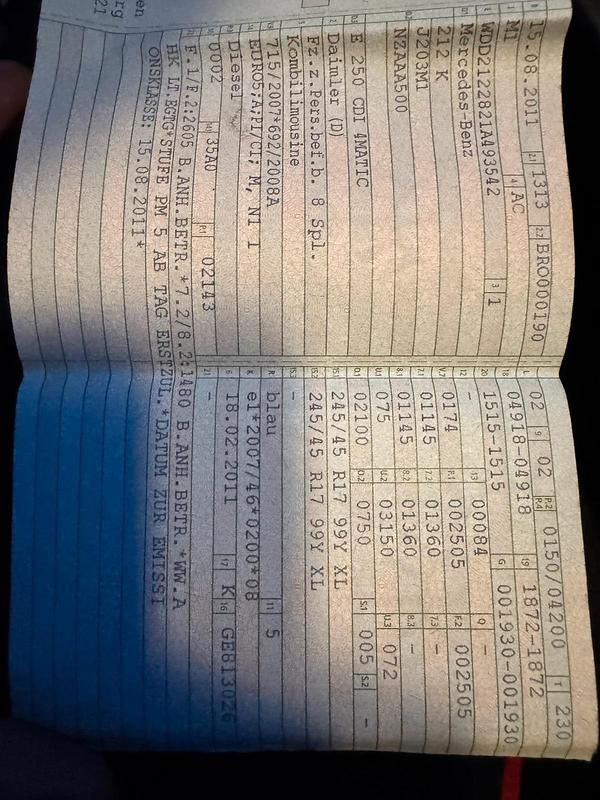 B 15.08.2011 2.1 1313 2.2 BRO000190
J M1 4 AC
E WDD2122821A493542 3 1
D.1 Mercedes-Benz
D.2 212 K
J2G3M1
NZAAA500
D.3 E 250 CDI 4MATIC
2 Daimler (D)
5 Fz.z.Pers.bef.b. 8 Spl.
Kombilimousine
V.9 715/2007*692/2008A
14 EURO5;A;PI/CI; M, N1 I
P.3 Diesel
10 0002 14.1 35A0 P.1 02143
22 F.1/F.2:2605 B.ANH.BETR.*7.2/8.2:1480 B.ANH.BETR.*WW.A
HK LT.EGTG*STUFE PM 5 AB TAG ERSTZUL.*DATUM ZUR EMISSI
ONSKLASSE: 15.08.2011*
L 02 9 02 P.2 P.4 0150/04200 T 230
18 04918-04918 19 1872-1872
20 1515-1515 G 001930-001930
12 – 13 00084 Q –
V.7 0174 F.1 002505 F.2 002505
7.1 01145 7.2 01360 7.3 –
8.1 01145 8.2 01360 8.3 –
U.1 075 U.2 03150 U.3 072
O.1 02100 O.2 0750 S.1 005 S.2 –
15.1 245/45 R17 99Y XL
15.2 245/45 R17 99Y XL
15.3 –
R blau 11 5
K e1*2007/46*0200*08
6 18.02.2011 17 K 16 GE813026
21 –
en
rg
21